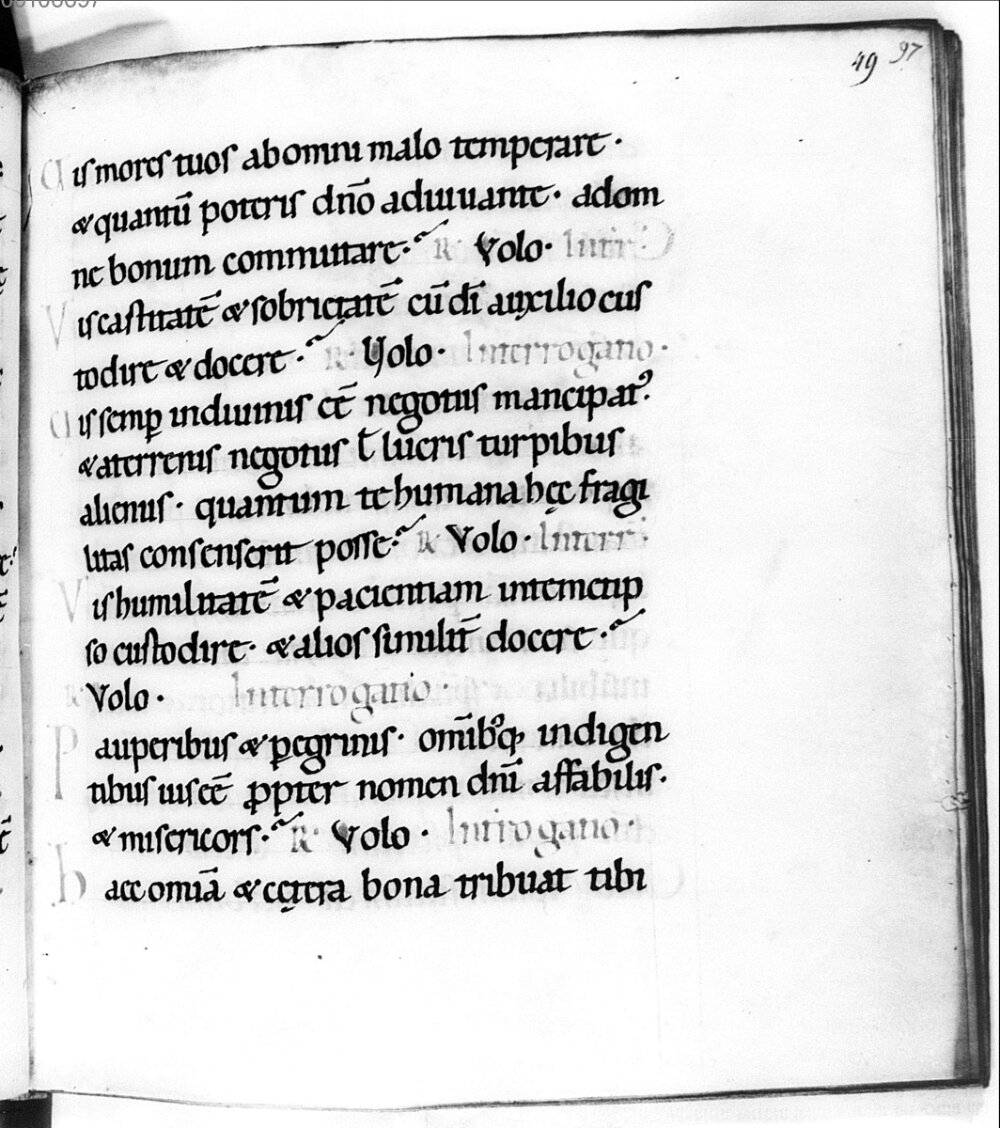 49 97
Uis mores tuos ab omni malo temperare·
& quantū poteris dn̄o adiuuante· ad om
ne bonum commuttare·~ R Volo· Interr
Vis castitatē & sobrietatē cū dī auxilio cus
todire & docere·~ R· Volo· Interrogatio·
Uis semꝑ in diuinis eē negotiis mancipat᷒·
& a terrenis negotiis ł lucris turpibus
alienus· quantum te humana hęc fragi
litas consenserit posse·~ R Volo· Interr·
Vis humilitatē & pacientiam in temetip
so custodire· & alios similit̄ docere·~
R Volo· Interrogatio·
Pauperibus & ꝑegrinis· om̄ib᷒q; indigen
tibus uis eē ꝓpter nomen dn̄i affabilis·
& misericors·~ R· Volo· Int̄rogatio·
Haec omiā & cętera bona tribuat tibi